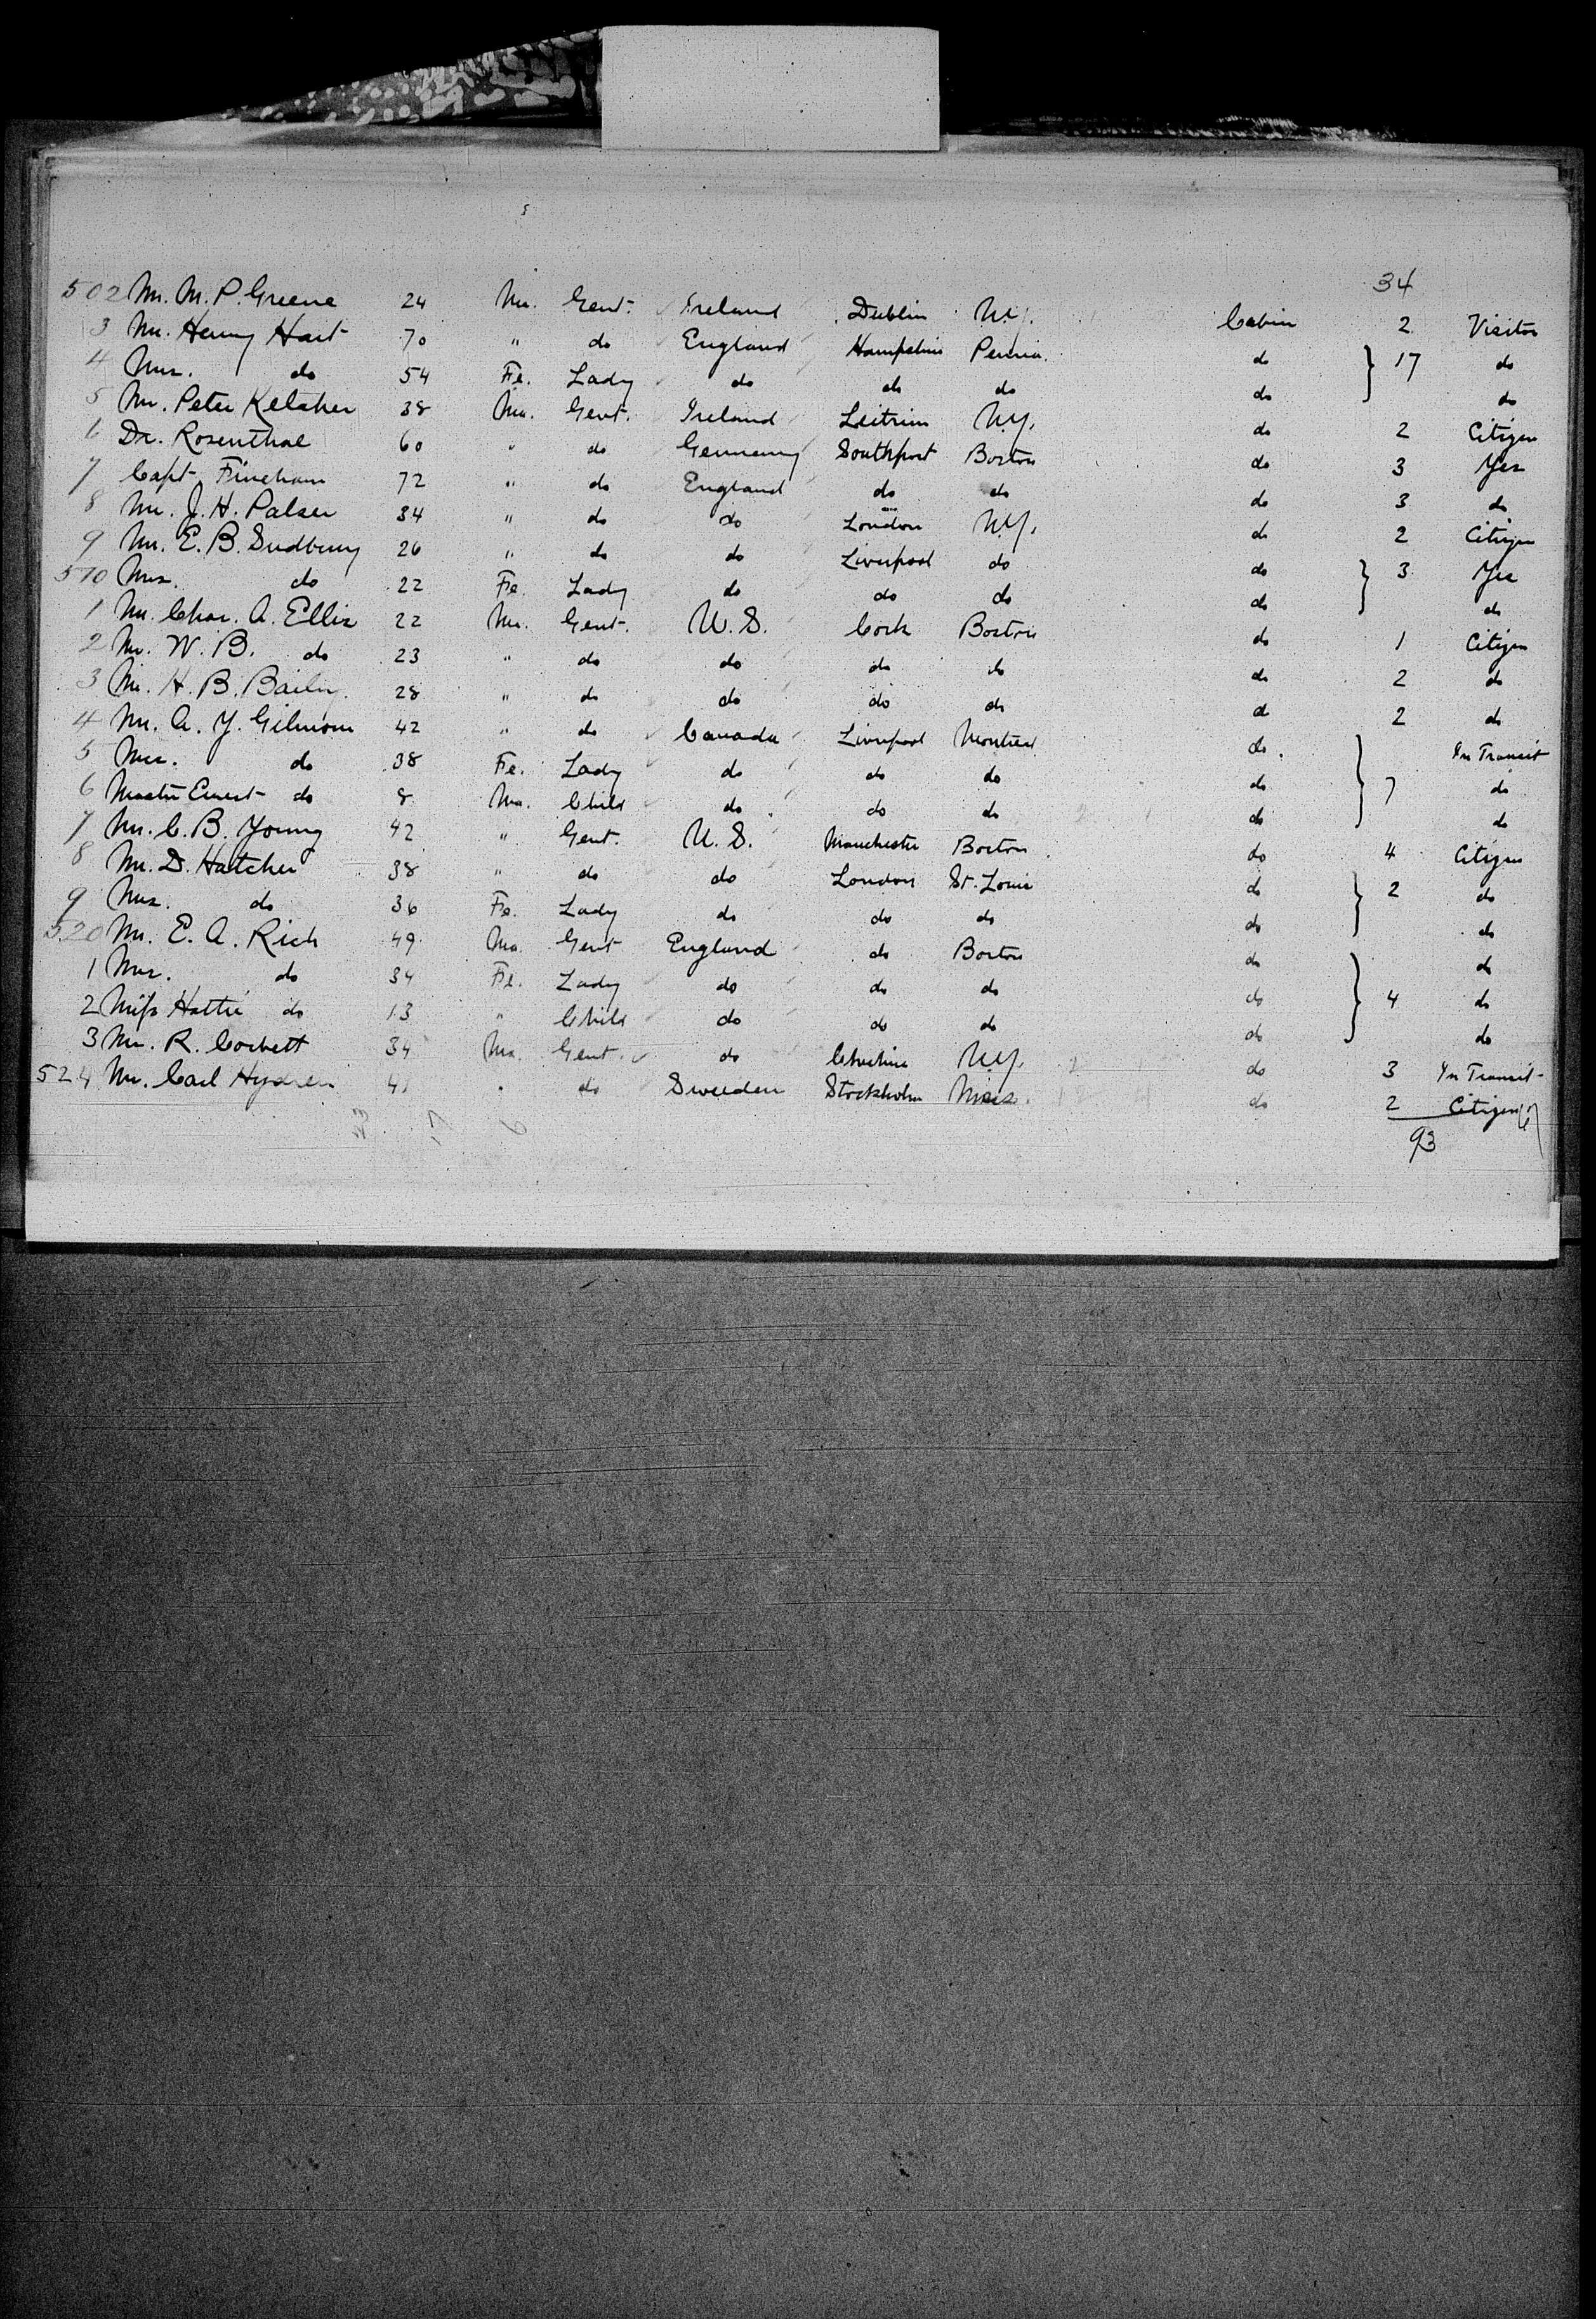 34
502 Mr. M. P. Greene 24 Ma. Gent. Ireland Dublin N.Y. Cabin 2 Visitor
3 Mr. Henry Hart 70 " do England Hampshire Penna. do } 17 do
4 Mrs. do 54 Fe. Lady do do do do do
5 Mr. Peter Kelaher 38 Ma. Gent. Ireland Leitrim N.Y. do 2 Citizen
6 Dr. Rosenthal 60 " do Germany Southport Boston do 3 Yes
7 Capt. Fincham 72 " do England do do do 3 do
8 Mr. J. H. Palser 34 " do do London N.Y. do 2 Citizen
9 Mr. E. B. Sudbury 26 " do do Liverpool do do } 3 Yes
510 Mrs. do 22 Fe. Lady do do do do do
1 Mr. Chas. A. Ellis 22 Ma. Gent. U.S. Cork Boston do 1 Citizen
2 Mr. W. B. do 23 " do do do do do 2 do
3 Mr. H. B. 28 " do do do do do 2 do
4 Mr. A. Y. Gilmour 42 " do Canada Liverpool Montreal do } In Transit
5 Mrs. do 38 Fe. Lady do do do do 7 do
6 Master Ernest do 8 Ma. Child do do do do do
7 Mr. C. B. Young 42 " Gent. U.S. Manchester Boston do 4 Citizen
8 Mr. D. Hatcher 38 " do do London St. Louis do } 2 do
9 Mrs. do 36 Fe. Lady do do do do do
520 Mr. E. A. Rich 49 Ma. Gent England do Boston do } do
1 Mrs. do 34 Fe. Lady do do do do 4 do
2 Miss Hattie do 13 " Child do do do do do
3 Mr. R. Corbett 34 Ma. Gent. do Cheshire N.Y. do 3 In Transit
524 Mr. Carl " do Sweeden Stockholm do 2 Citizen
93